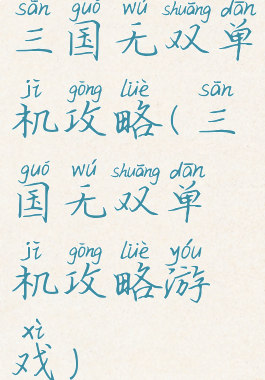 sān guó wú shuāng dān
三国无双单
jī gōng lüè sān
机攻略(三
guó wú shuāng dān
国无双单
jī gōng lüè yóu
机攻略游
xì
戏)